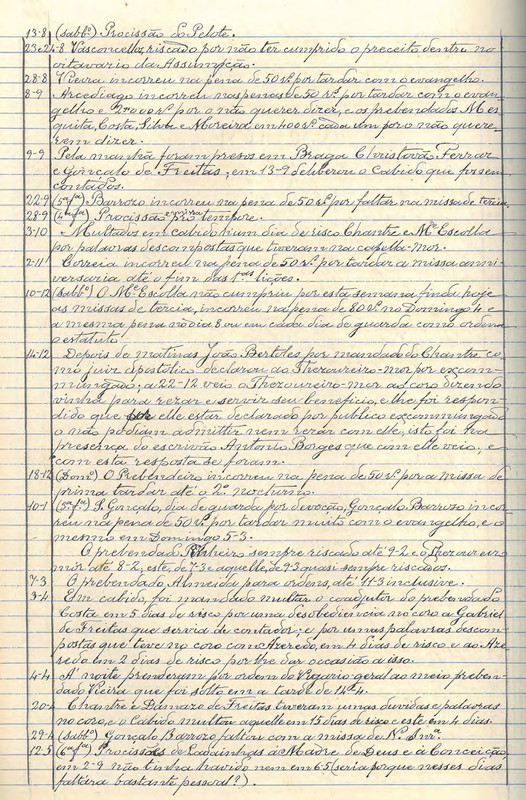 13-8 (sabb.º) Procissão do Pelote.
23 e 24-8 Vasconcellos, riscado por não ter cumprido o preceito dentro no
oitavario da Assumpção.
28-8 Vieira incorreu na pena de 50 rs. por tardar com o evangelho.
8-9 Arcediago incorreu nas penas de 50 rs. por tardar com o evan-
gelho e 2:000 rs. por o não querer dizer, e os prebendados Mes-
quita, Costa, Silva e Moreira em 400 rs. cada um por o não quere-
rem dizer.
9-9 Pela manhã foram presos em Braga Christovão Ferraz
e Gonçalo de Freitas; em 13-9 deliberou o Cabido que fossem
contados.
22-9 (5ª fª) Barrozo incorreu na pena de 50 rs. por faltar na missa de tercia.
28-9 (4ª fª) Procissão e missa pro tempore.
3-10 Multados em cabido n'um dia de risco Chantre e M.e Escolla
por palavras descompostas que tiveram na capella-mor.
2-11 Correia incorreu na pena de 50 rs. por tardar a missa anni-
versaria até o fim das 1.as lições.
10-12 (sabb.º) O M.e Escolla não cumpriu por esta semana finda hoje
as missas de tercia, incorreu na pena de 80 rs. no Domingo 4 e
a mesma pena no dia 8 ou em cada dia de guarda como ordena
o estatuto.
14-12 Depois de matinas João Bertoles por mandado do Chantre co-
mo juiz apostolico declarou ao Thezoureiro-mor por excom-
mungado; a 22-12 veio o Thezoureiro-mor ao coro dizendo
vinha para rezar e servir seu beneficio, e lhe foi respon-
dido que elle estar declarado por publico excommungado
o não podiam admittir nem rezar com elle, isto foi na
presença do escrivão Antonio Borges que com elle veio, e
com esta resposta se foram.
18-12 (Domº) O Prebendeiro incorreu na pena de 50 rs. por a missa de
prima tardar até o 2.º nocturno.
10-1 (3ª fª) S. Gonçalo, dia de guarda por devoção, Gonçalo Barrozo incor-
reu na pena de 50 rs. por tardar muito com o evangelho, e o
mesmo em Domingo 5-3.
O prebendado Ribeiro sempre riscado até 9-2 e o Thezoureiro
mór até 8-2, este, de 7-3 e aquelle, de 9-3 quasi sempre riscados.
7-3 O prebendado Almeida para ordens, até 11-3 inclusive.
3-4 Em cabido, foi mandado multar o coadjutor do prebendado
Costa em 5 dias de risco por uma desobediencia no coro a Gabriel
de Freitas que servia de contador; e por umas palavras descom-
postas que teve no coro com Azeredo, em 4 dias de risco e ao Aze-
redo em 2 dias de risco por lhe dar occasião a isso.
4-4 A' noite prenderam por ordem do Vigario geral ao meio preben-
dado Vieira que foi solto em a tarde de 14-4.
20-4 Chantre e Damazo de Freitas tiveram umas duvidas e palavras
no coro, e o Cabido multou aquelle em 15 dias de risco e este em 4 dias.
29-4 (sabb.º) Gonçalo Barrozo faltou com a missa de N.ª Snr.ª
12-5 (6ª fª) Procissões de Ladainhas á Madre de Deus e á Conceição,
em 2-9 não tinha havido nem em 6-5 (seria porque nesses dias
faltára bastante pessoal?).